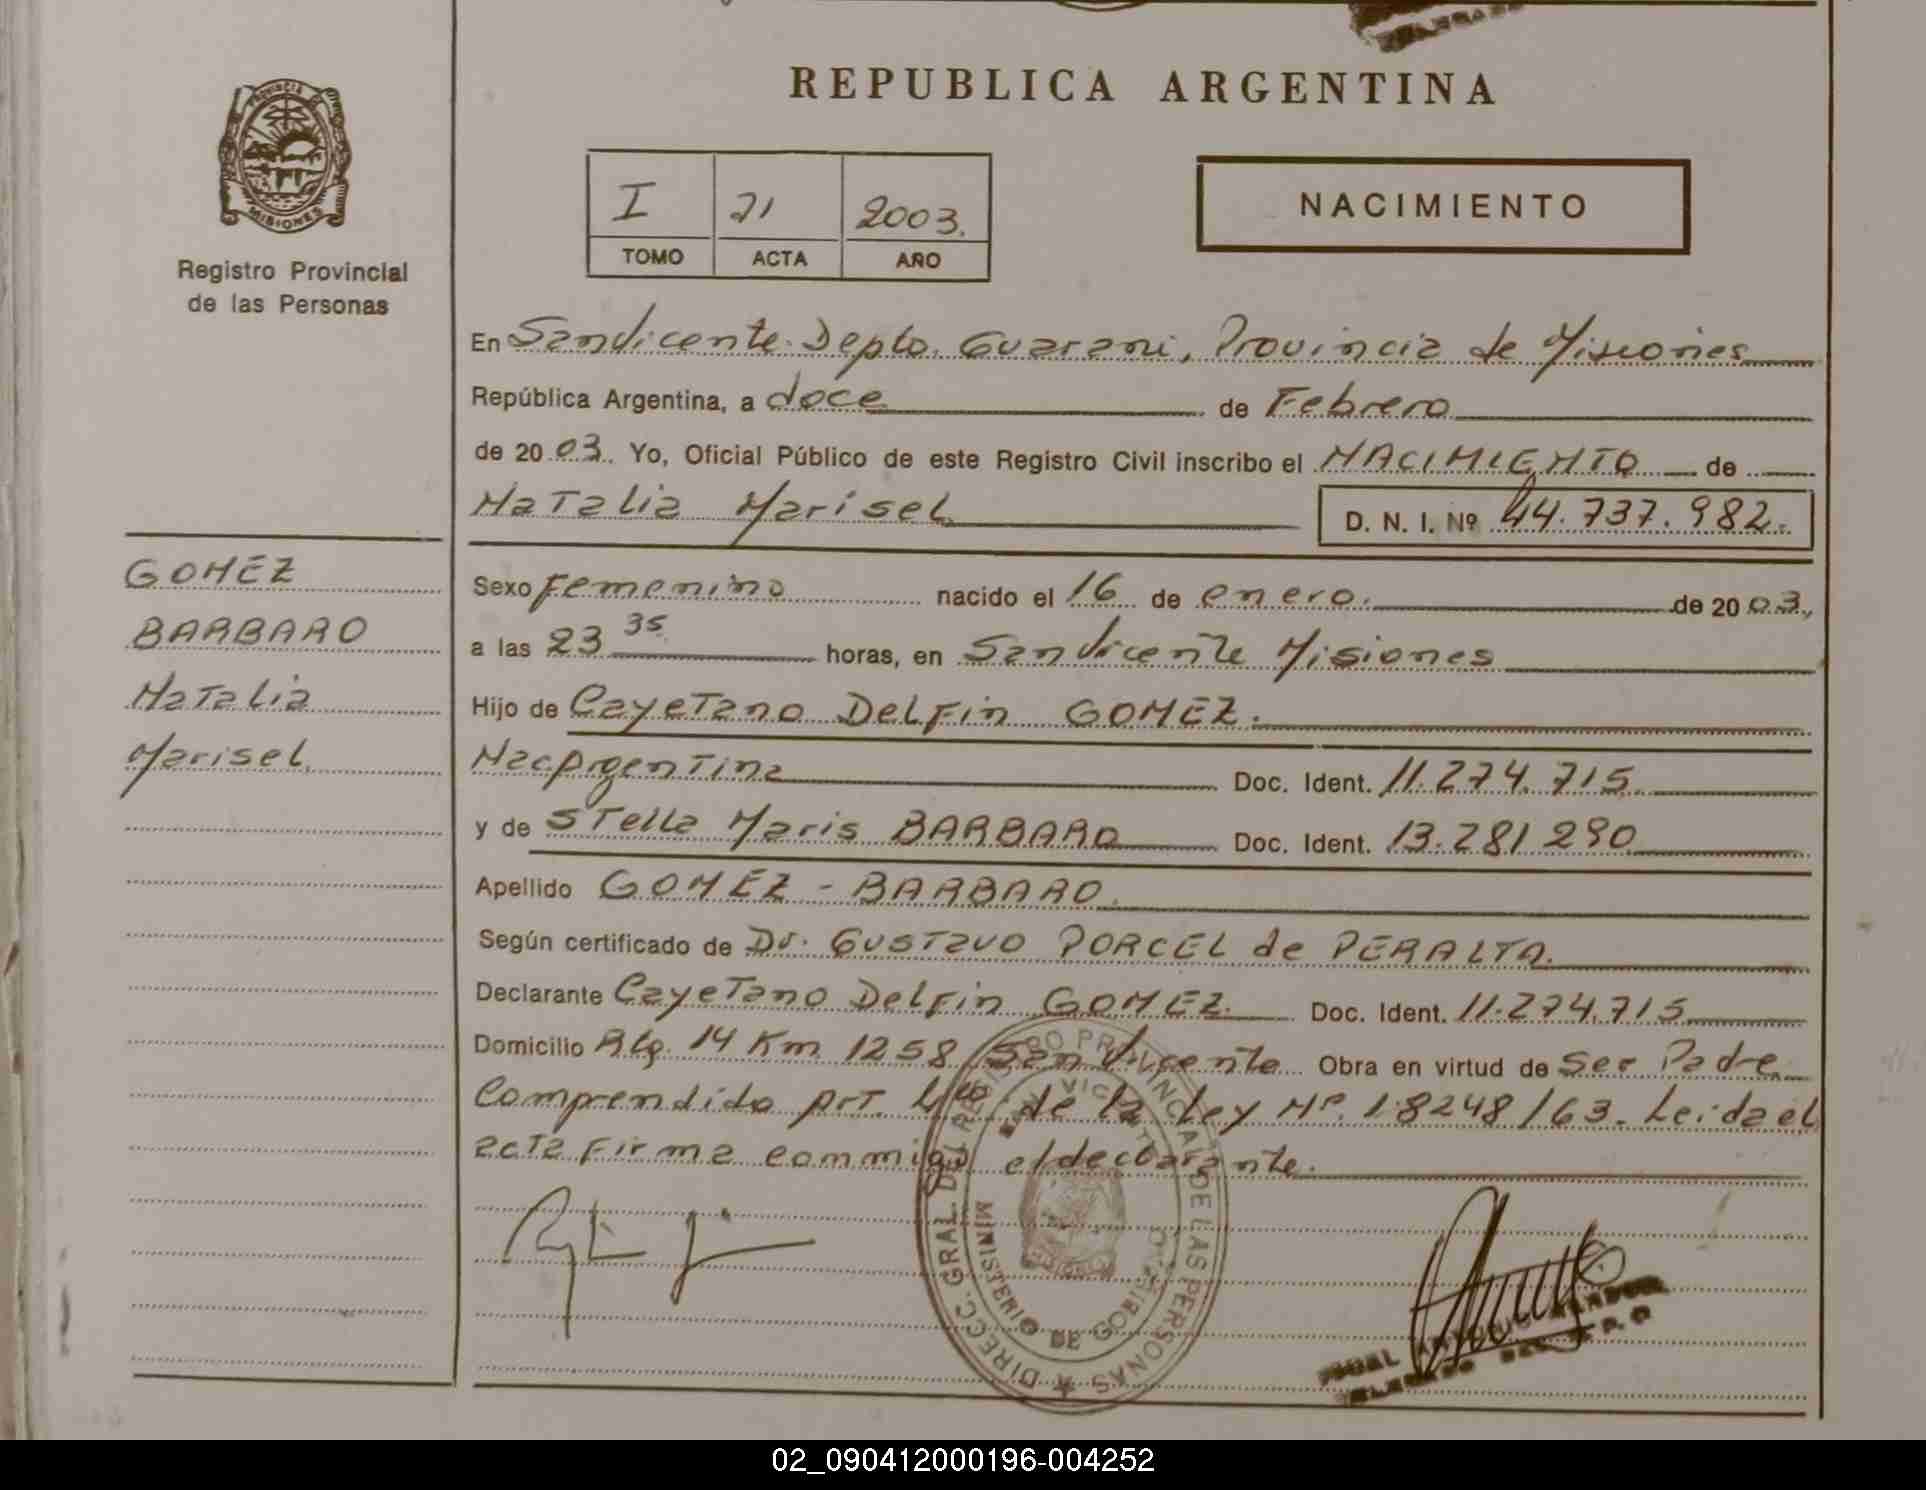 REPUBLICA ARGENTINA
PROVINCIA DE
MISIONES
Registro Provincial
de las Personas
I 21 2003.
TOMO ACTA AÑO
NACIMIENTO
En San Vicente Depto. Guarani, Provincia de Misiones
República Argentina, a doce de Febrero
de 2003. Yo, Oficial Público de este Registro Civil inscribo el NACIMIENTO de
Natalia Marisel
D. N. I. Nº 44.737.982.-
GOMEZ
BARBARO
Natalia
Marisel
Sexo Femenino nacido el 16 de enero. de 2003,
a las 23 35 horas, en San Vicente Misiones
Hijo de Cayetano Delfin GOMEZ.
Nac Argentina Doc. Ident. 11.274.715
y de Stella Maris BARBARO Doc. Ident. 13.281 290
Apellido GOMEZ - BARBARO.
Según certificado de Dr. Gustavo PORCEL de PERALTA.
Declarante Cayetano Delfin GOMEZ. Doc. Ident. 11.274.715
Domicilio Rtg. 14 Km 1258 San Vicente Obra en virtud de Ser Padre
Comprendido Art. 4to de la Ley Nº. 18248/63. Leida el
acta firma conmigo el declarante.
DIRECC. GRAL. DEL REGISTRO PROVINCIAL DE LAS PERSONAS
SAN VICENTE
MINISTERIO DE GOBIERNO
MISIONES
02_090412000196-004252